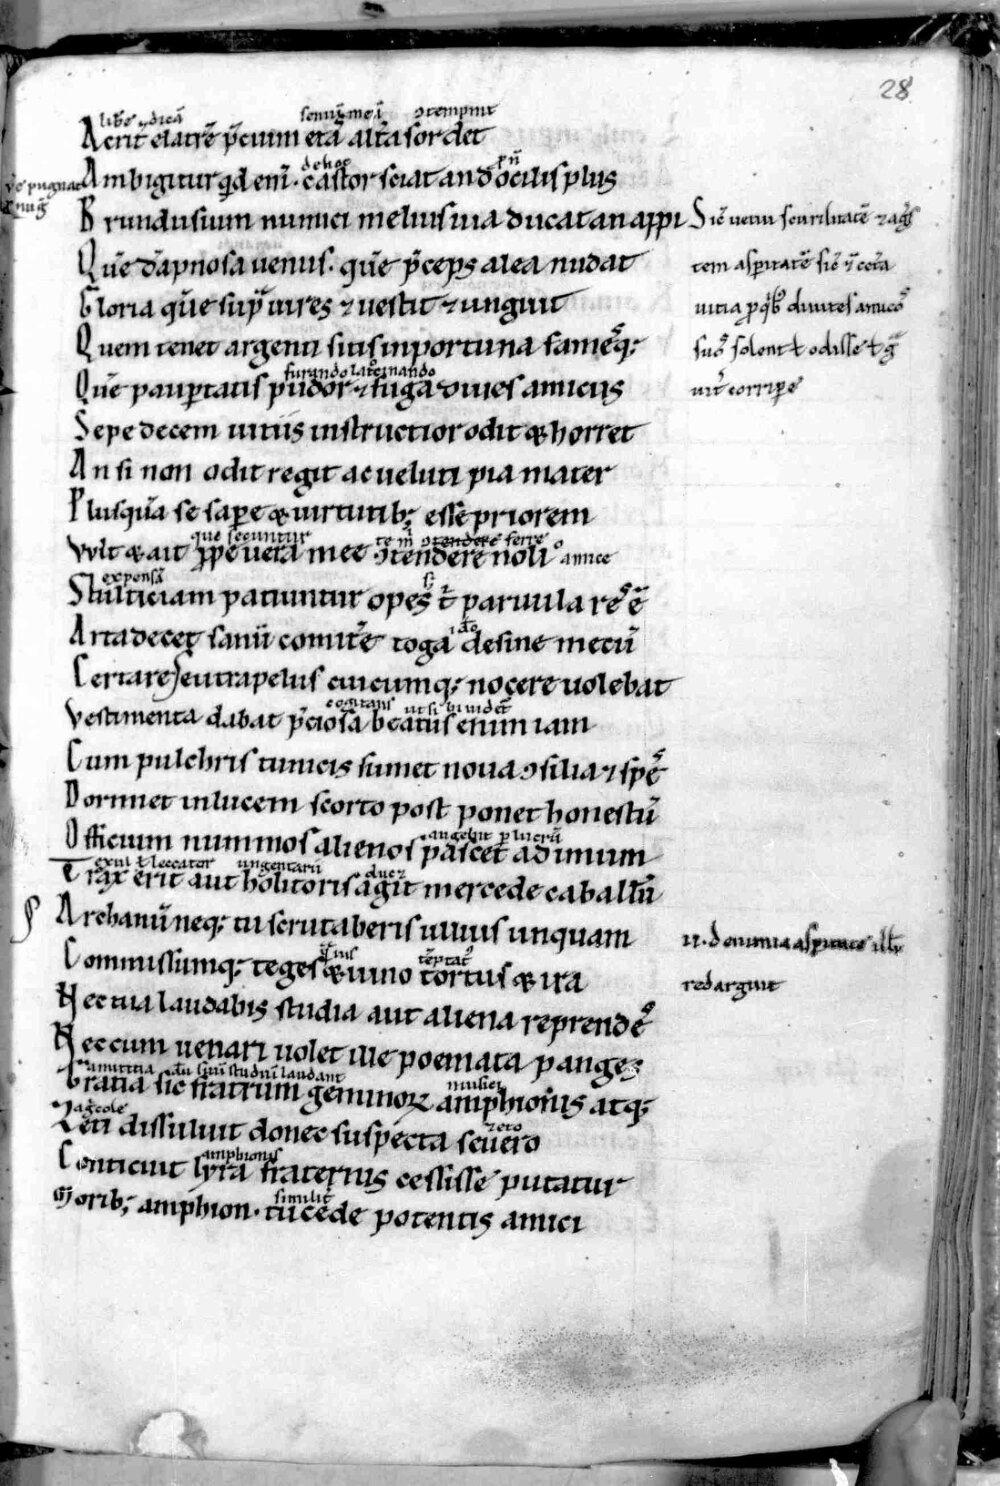 28
A crit̄ elatrē p̄cium etā alt̄a sordet
A mbigitur qid eni̅ · castor sciat an docilis plus
B rundusium numici melius uia ducat an appi
Q uē da̅pnosa uenus · quē p̄ceps alea nudat
G loria quē sup̄ uires ⁊ uestit ⁊ unguit
Q uem tenet argenti sitis inportuna famesq;
furando latrocinando
Q uē paup̄tatis pudor ⁊ fuga diues amicus
S epe decem uitiis instructior odit & horret
A n si non odit regit ac ueluti pia mater
P lusquā se sapere & uirtutib; esse priorem
que secuntur
V ult & ait prope uera mee ɔtendere noli
amice
expensā
S tulticiam patiuntur opes t̄ paruula res ē
A rta decet sanū comitē toga desine mecū
C ertare eutrapelus cuicumq; nocere uolebat
cogitans ut si ui uidet
V estimenta dabat p̄ciosa beatus enim iam
C um pulchris tunicis sumet noua ɔsilia ⁊ spes
D ormiet in lucem scorto post ponet honestū
O fficium nummos alienos pascet ad imum
exul ł leccator ungentarii
T rax erit aut holitoris aget mercede caballū
A rchanū neq; tu scrutaberis illius unquam
C ommissumq; teges & uino tortus & ira
N ec tua laudabis studia aut aliena reprendes
N ec cum uenari uolet ille poemata panges
amicitia
musici
G ratia sic fratrum geminoꝝ amphionis atq;
Z eti dissiluit donec suspecta seuero
amphionis
C onticuit lyra fraternis cessisse putatur
M orib; amphion · tu cede potentis amici
Sic uetui scurrilitatē ⁊ ag̅s
tem asp̄itatē sic ⁊ cetā
uitia p̄ quib; diuites amicos
suos solent ł odisse ł
corripe
n · de nimia asp̄itate illū
redarguit